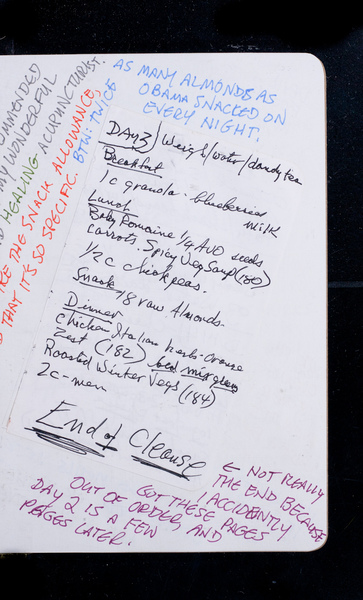 COMMENDED
MY WONDERFUL
HEALING ACUPUNCTURIST.
RE THE SNACK ALLOWANCE,
D THAT IT'S SO SPECIFIC.
BTW: TWICE
AS MANY ALMONDS AS
OBAMA SNACKED ON
EVERY NIGHT.
DAY 3 / Weigh / water / dandy tea
Breakfast
1 c granola - blueberries
milk
Lunch
Baby Romaine 1/4 Avo seeds
carrots. Spicy Veg Soup (180)
1/2 c chickpeas.
Snack 18 raw Almonds.
Dinner
Chicken Italian herb-orange
Zest (182) bed mix greens
Roasted Winter Vegs (184)
2c-
End of Cleanse
← NOT REALLY
THE END BECAUSE
I ACCIDENTLY
GOT THESE PAGES
OUT OF ORDER, AND
DAY 2 IS A FEW
PAGES LATER.